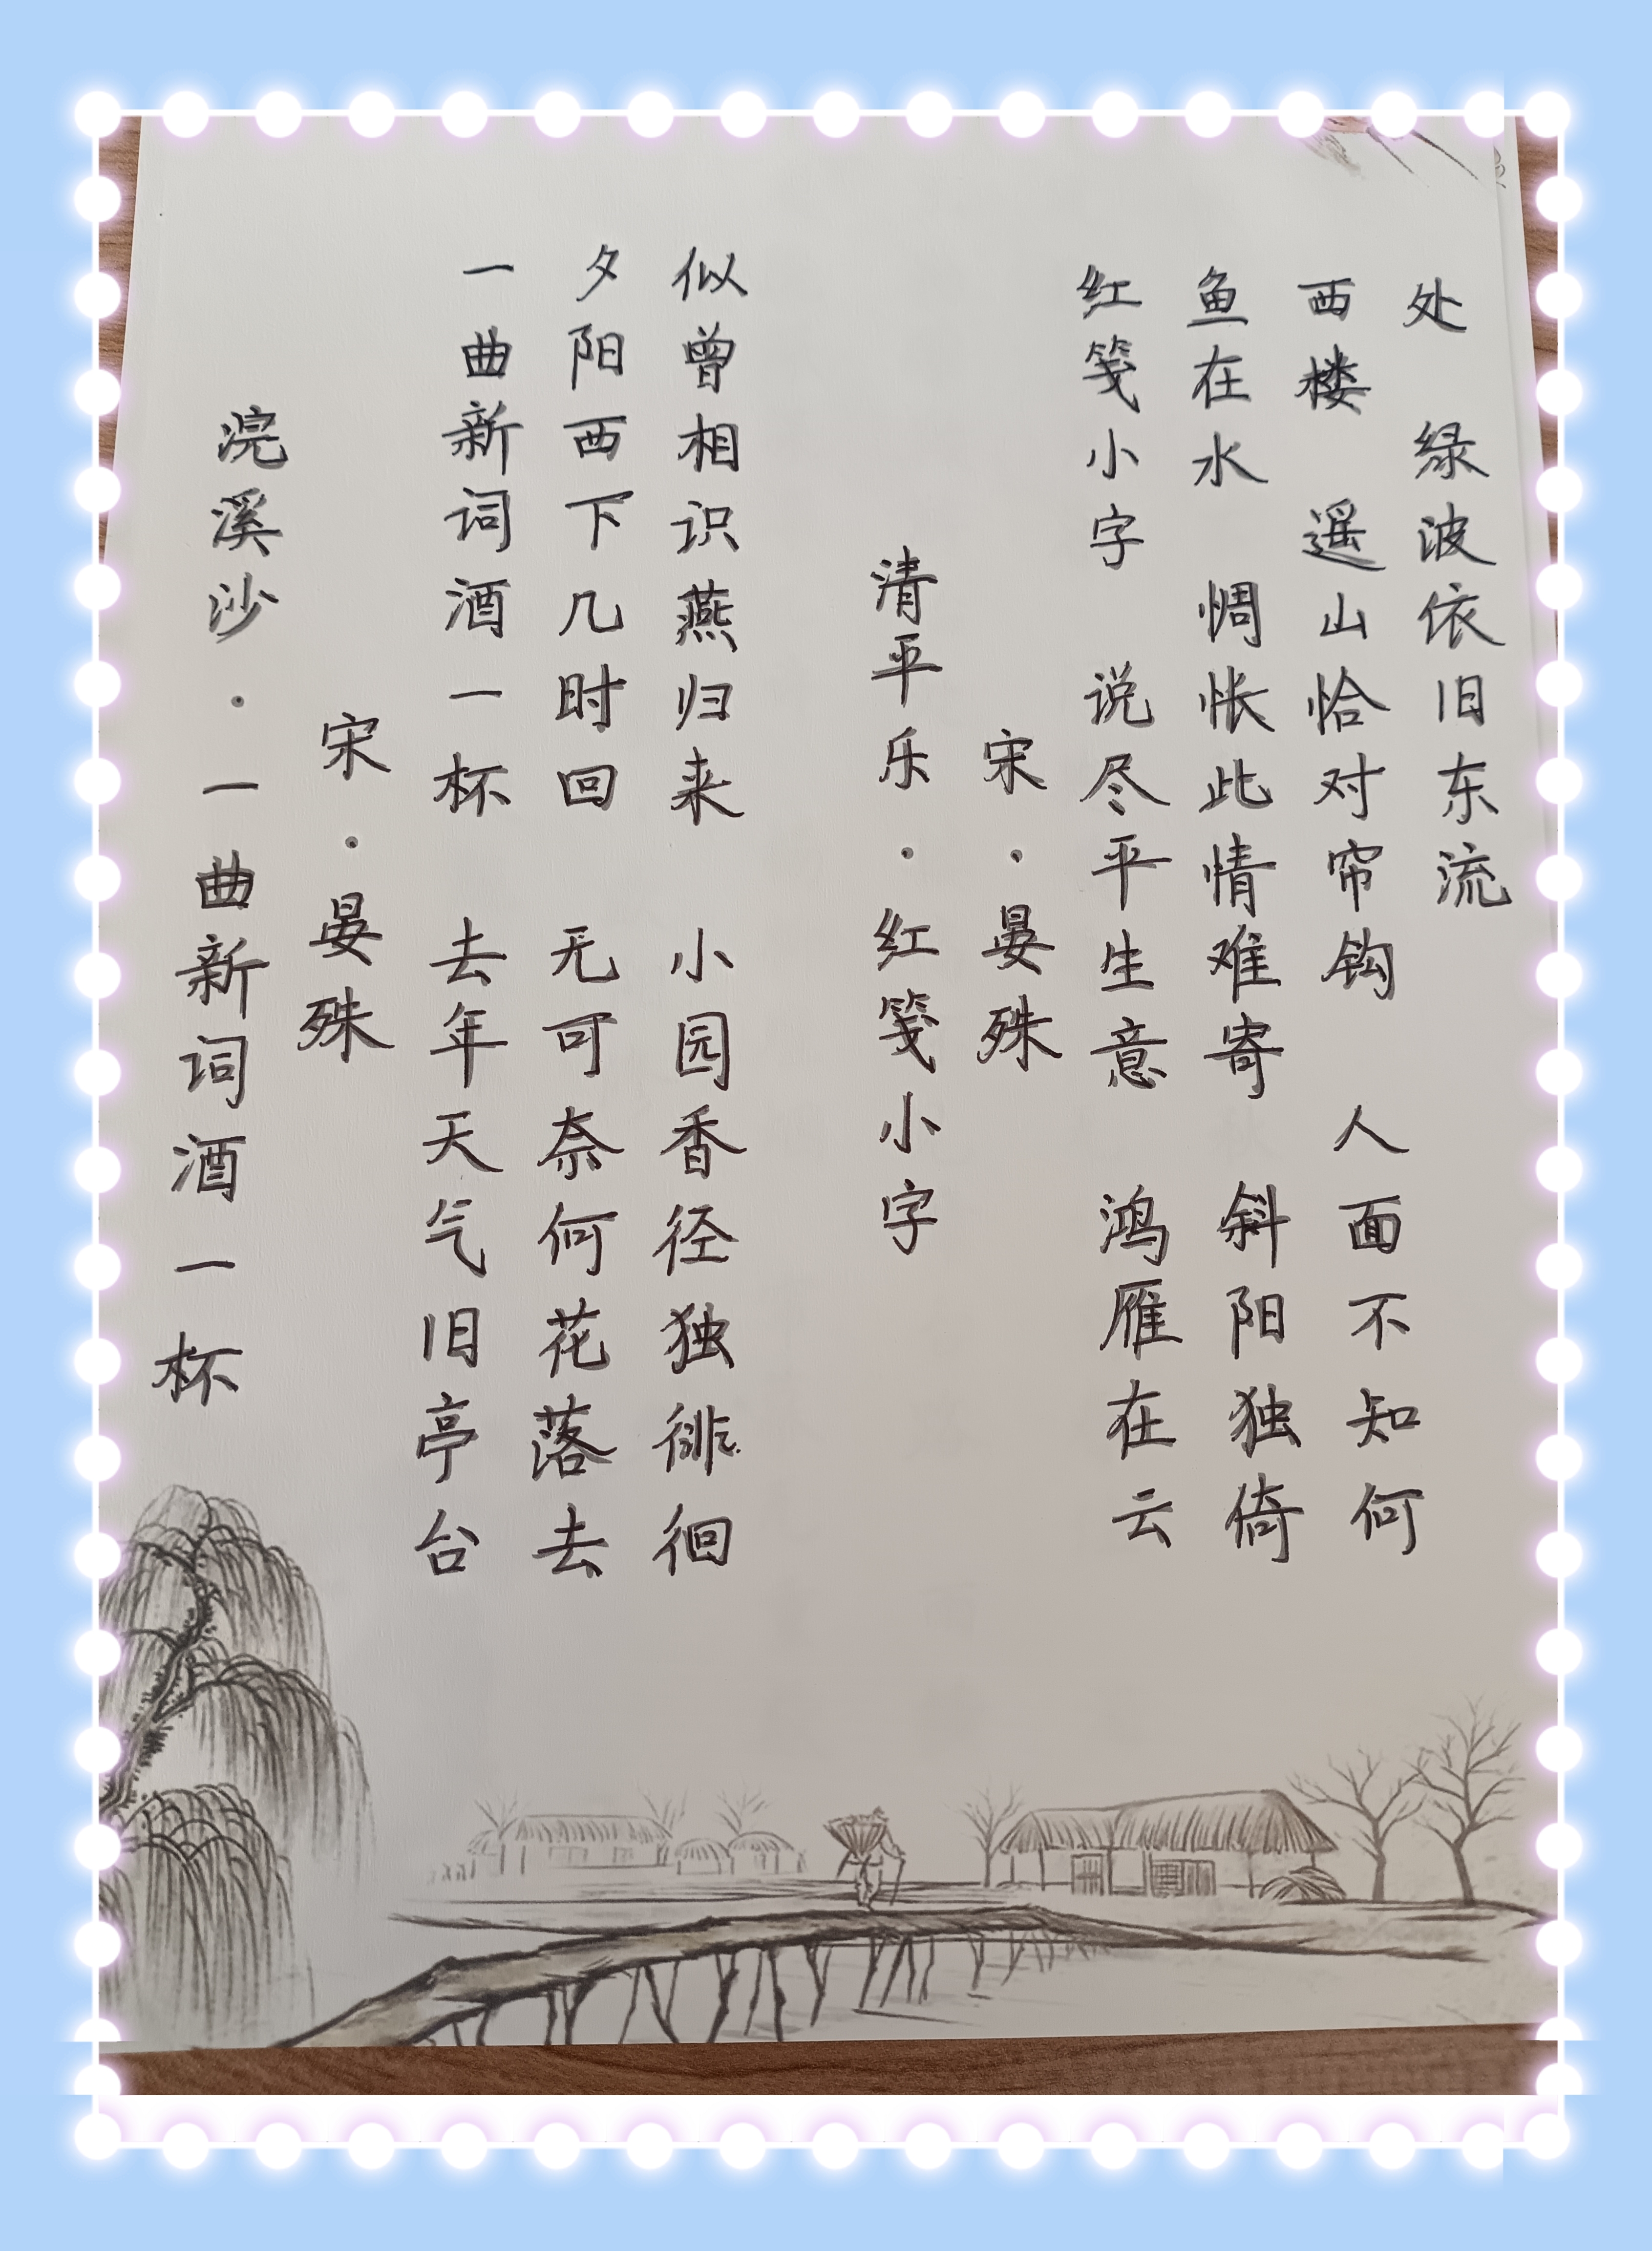 浣溪沙·一曲新词酒一杯
宋·晏殊
一曲新词酒一杯 去年天气旧亭台
夕阳西下几时回 无可奈何花落去
似曾相识燕归来 小园香径独徘徊
清平乐·红笺小字
宋·晏殊
红笺小字 说尽平生意 鸿雁在云
鱼在水 惆怅此情难寄 斜阳独倚
西楼 遥山恰对帘钩 人面不知何
处 绿波依旧东流